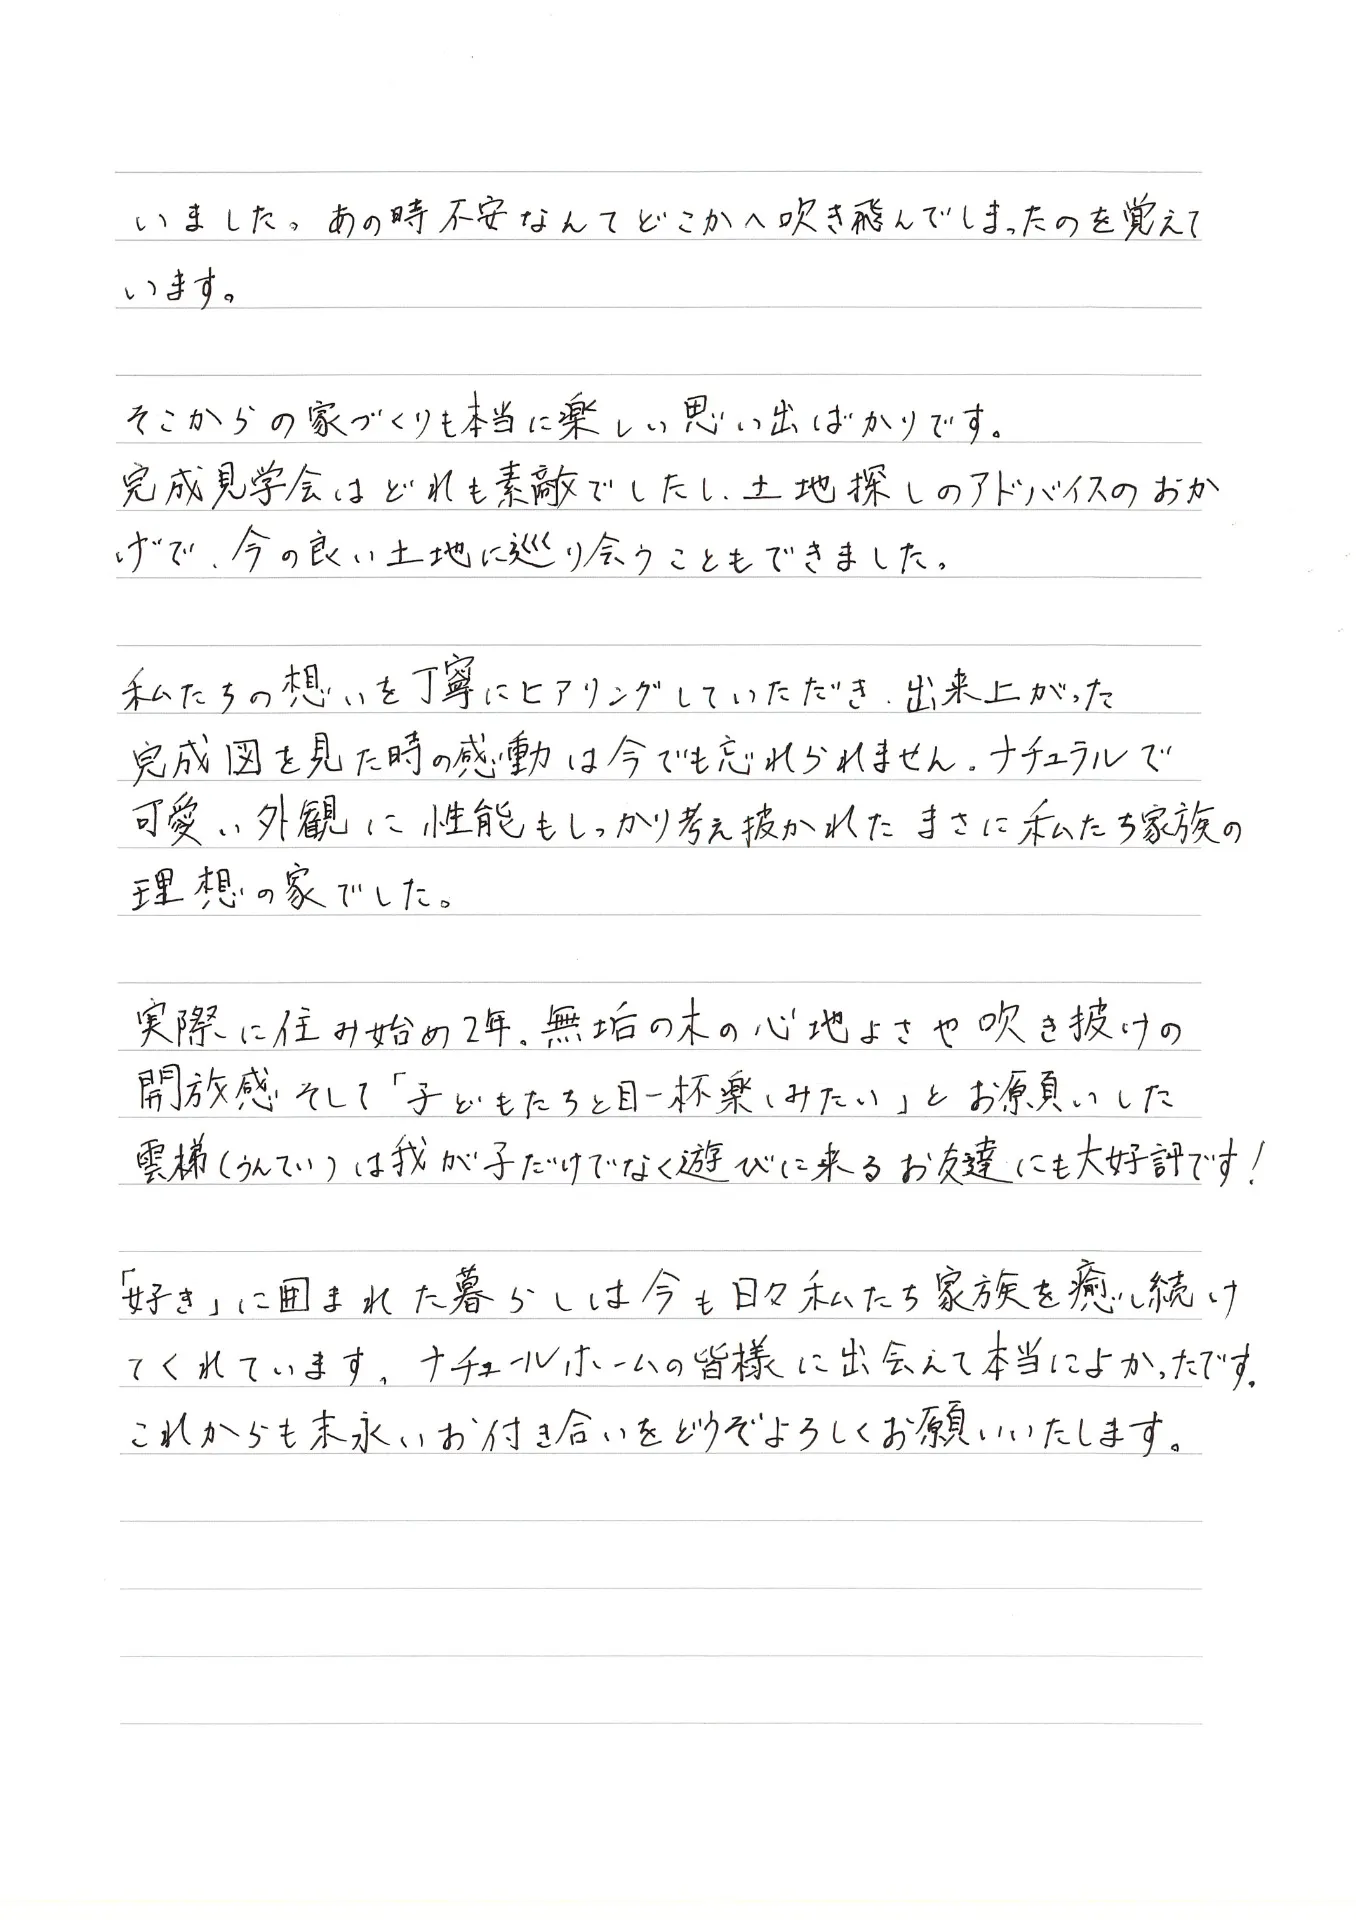 いました。あの時不安なんてどこかへ吹き飛んでしまったのを覚えて
います。
そこからの家づくりも本当に楽しい思い出ばかりです。
完成見学会はどれも素敵でしたし、土地探しのアドバイスのおか
げで、今の良い土地に巡り会うこともできました。
私たちの想いを丁寧にヒアリングしていただき、出来上がった
完成図を見た時の感動は今でも忘れられません。ナチュラルで
可愛い外観に性能もしっかり考え抜かれたまさに私たち家族の
理想の家でした。
実際に住み始め2年。無垢の木の心地よさや吹き抜けの
開放感そして「子どもたちと目一杯楽しみたい」とお願いした
雲梯(うんてい)は我が子だけでなく遊びに来るお友達にも大好評です!
「好き」に囲まれた暮らしは今も日々私たち家族を癒し続け
てくれています。ナチュールホームの皆様に出会えて本当によかったです。
これからも末永いお付き合いをどうぞよろしくお願いいたします。